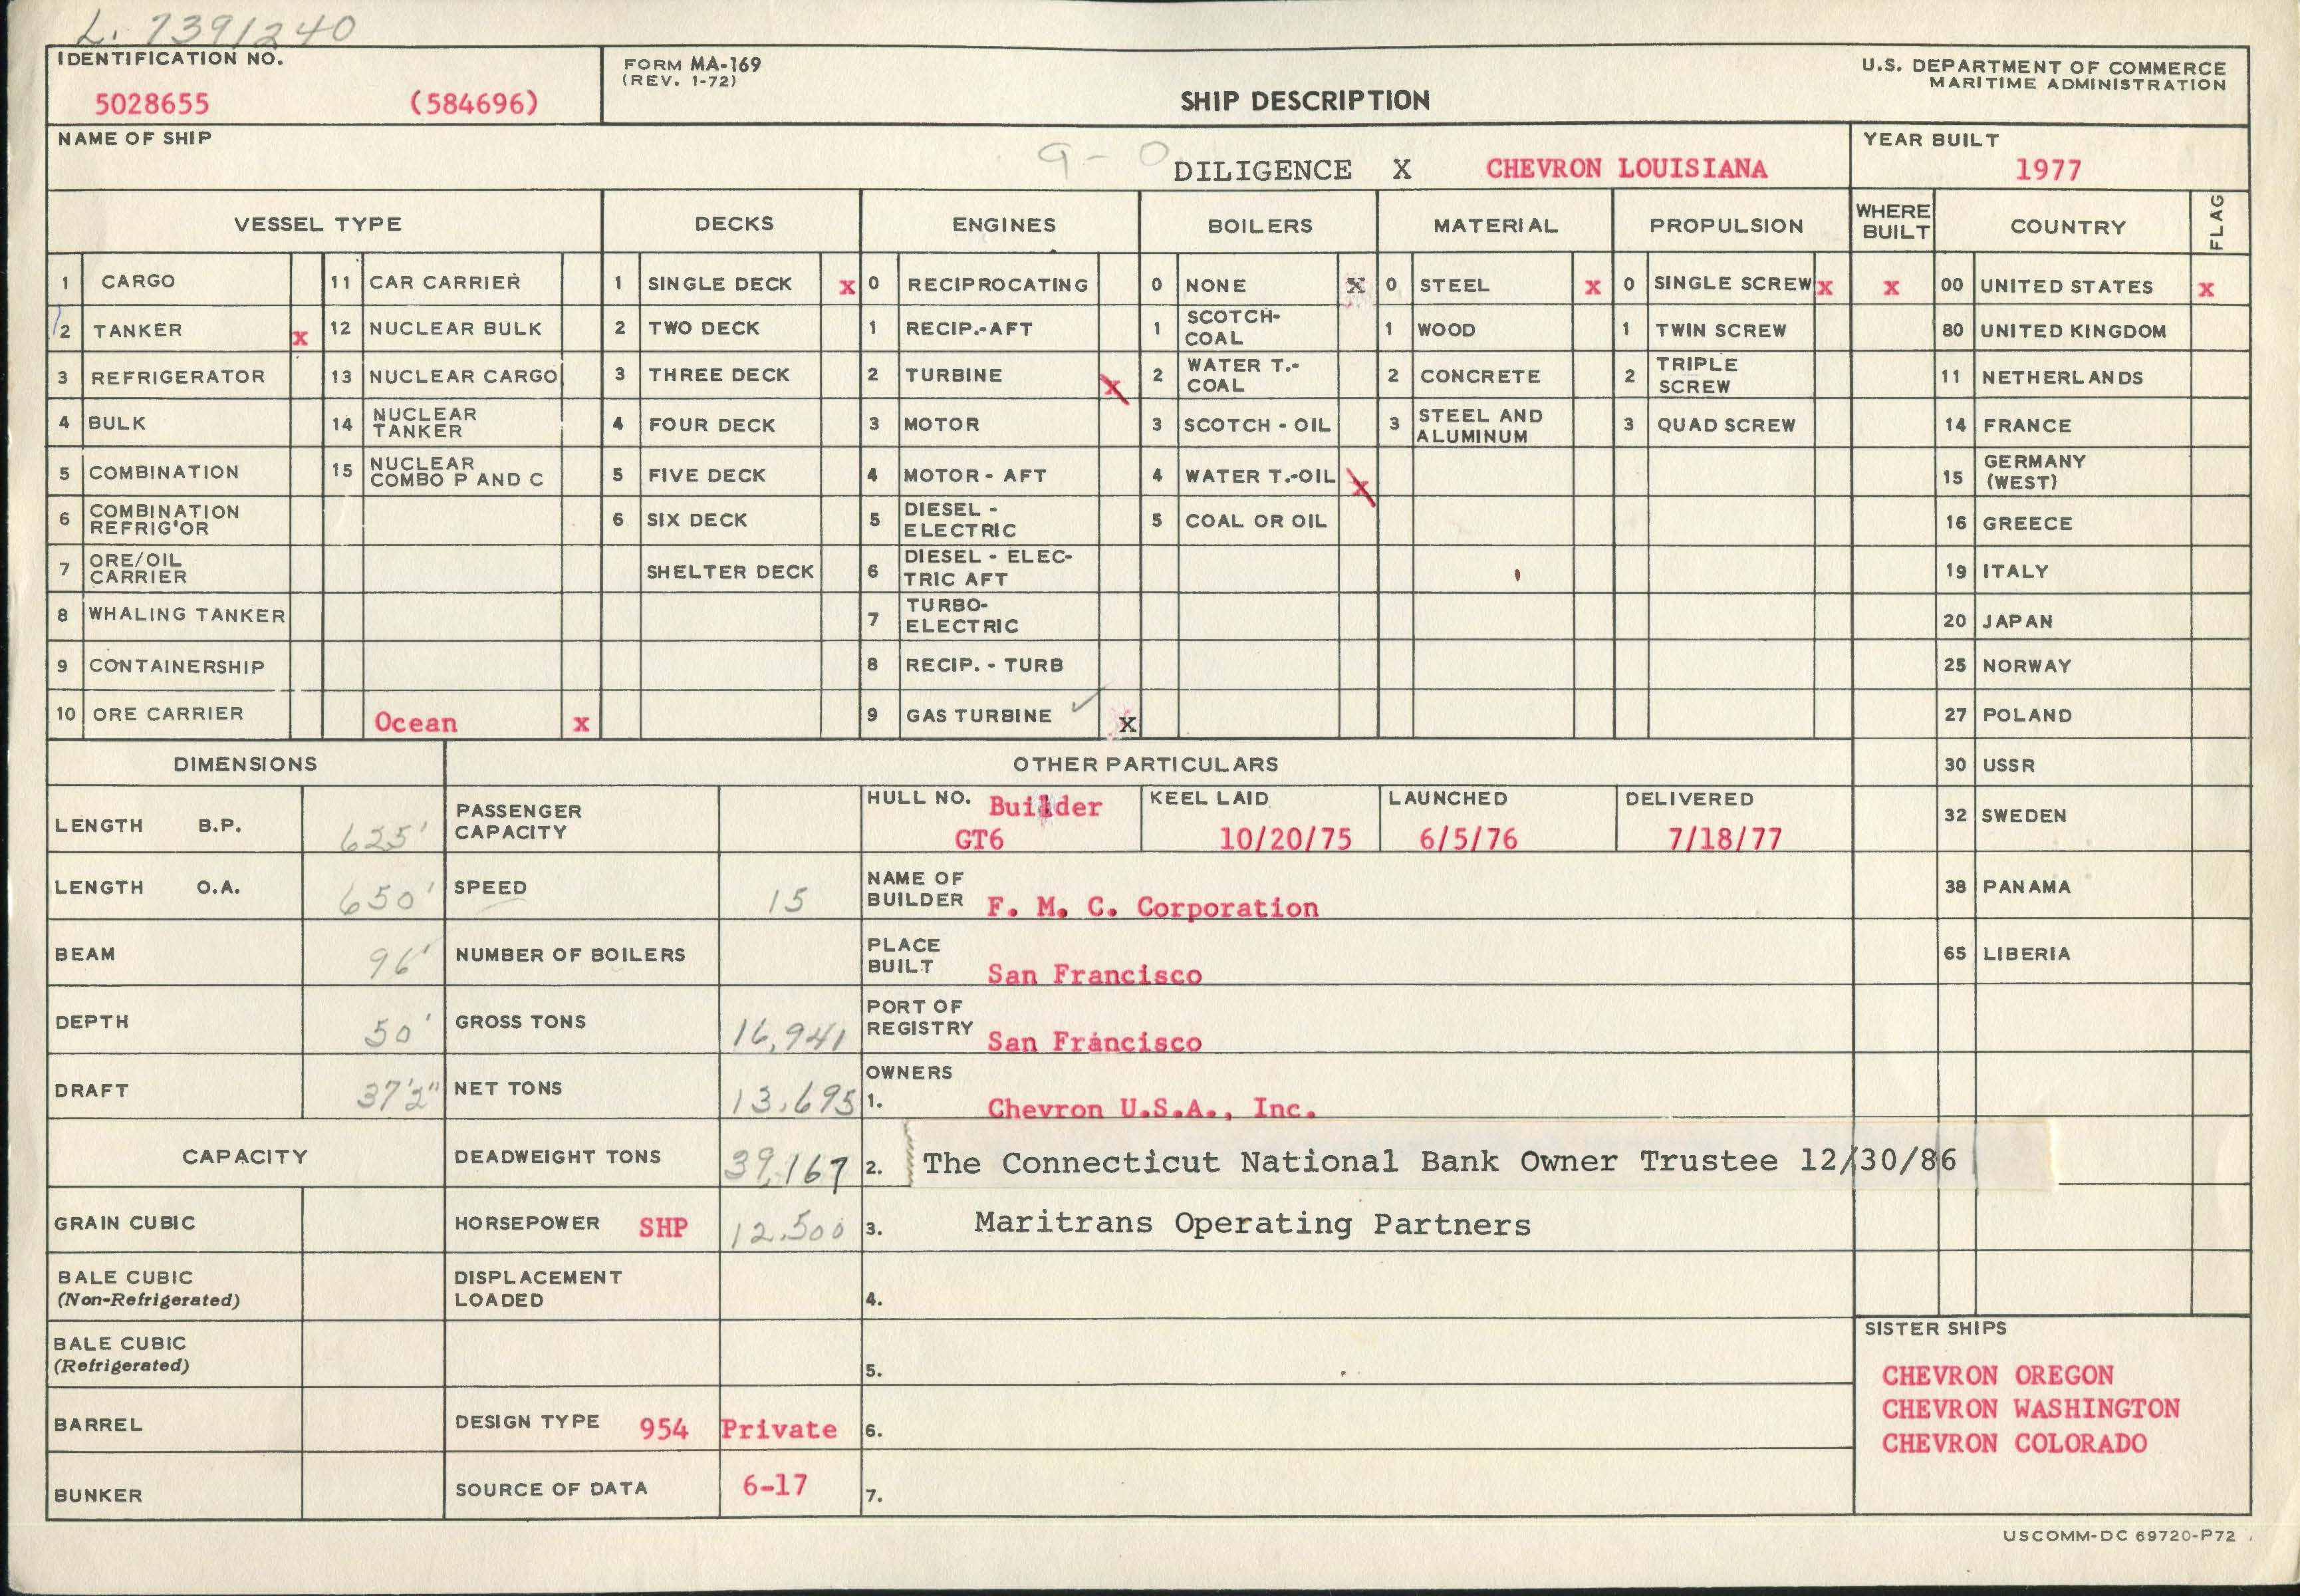 L. 7391240
IDENTIFICATION NO.
5028655 (584696)
FORM MA-169
(REV. 1-72)
SHIP DESCRIPTION
U.S. DEPARTMENT OF COMMERCE
MARITIME ADMINISTRATION
NAME OF SHIP
9-0 DILIGENCE X CHEVRON LOUISIANA
YEAR BUILT
1977
VESSEL TYPE DECKS ENGINES BOILERS MATERIAL PROPULSION WHERE BUILT COUNTRY FLAG
1 CARGO 11 CAR CARRIER 1 SINGLE DECK x 0 RECIPROCATING 0 NONE x 0 STEEL x 0 SINGLE SCREW x x 00 UNITED STATES x
2 TANKER x 12 NUCLEAR BULK 2 TWO DECK 1 RECIP.-AFT 1 SCOTCH-COAL 1 WOOD 1 TWIN SCREW 80 UNITED KINGDOM
3 REFRIGERATOR 13 NUCLEAR CARGO 3 THREE DECK 2 TURBINE x 2 WATER T.-COAL 2 CONCRETE 2 TRIPLE SCREW 11 NETHERLANDS
4 BULK 14 NUCLEAR TANKER 4 FOUR DECK 3 MOTOR 3 SCOTCH - OIL 3 STEEL AND ALUMINUM 3 QUAD SCREW 14 FRANCE
5 COMBINATION 15 NUCLEAR COMBO P AND C 5 FIVE DECK 4 MOTOR - AFT 4 WATER T.-OIL x 15 GERMANY (WEST)
6 COMBINATION REFRIG'OR 6 SIX DECK 5 DIESEL - ELECTRIC 5 COAL OR OIL 16 GREECE
7 ORE/OIL CARRIER SHELTER DECK 6 DIESEL - ELEC-TRIC AFT 19 ITALY
8 WHALING TANKER 7 TURBO-ELECTRIC 20 JAPAN
9 CONTAINERSHIP 8 RECIP. - TURB 25 NORWAY
10 ORE CARRIER Ocean x 9 GAS TURBINE ✓ x 27 POLAND
DIMENSIONS OTHER PARTICULARS 30 USSR
LENGTH B.P. 625' PASSENGER CAPACITY HULL NO. Builder GT6 KEEL LAID 10/20/75 LAUNCHED 6/5/76 DELIVERED 7/18/77 32 SWEDEN
LENGTH O.A. 650' SPEED 15 NAME OF BUILDER F. M. C. Corporation 38 PANAMA
BEAM 96' NUMBER OF BOILERS PLACE BUILT San Francisco 65 LIBERIA
DEPTH 50' GROSS TONS 16,941 PORT OF REGISTRY San Francisco
DRAFT 37'2" NET TONS 13,695 OWNERS 1. Chevron U.S.A., Inc.
CAPACITY DEADWEIGHT TONS 39,167 2. The Connecticut National Bank Owner Trustee 12/30/86
GRAIN CUBIC HORSEPOWER SHP 12,500 3. Maritrans Operating Partners
BALE CUBIC (Non-Refrigerated) DISPLACEMENT LOADED 4.
BALE CUBIC (Refrigerated) 5.
BARREL DESIGN TYPE 954 Private 6.
BUNKER SOURCE OF DATA 6-17 7.
SISTER SHIPS
CHEVRON OREGON
CHEVRON WASHINGTON
CHEVRON COLORADO
USCOMM-DC 69720-P72